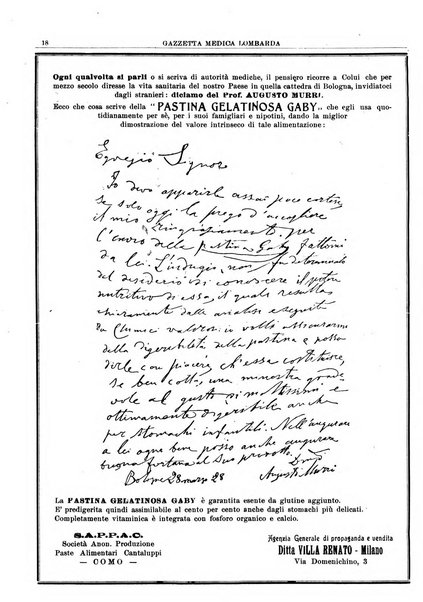 18
GAZZETTA MEDICA LOMBARDA
Ogni qualvolta si parli o si scriva di autorità mediche, il pensiero ricorre a Colui che per
mezzo secolo diresse la vita sanitaria del nostro Paese in quella cattedra di Bologna, invidiatoci
dagli stranieri: diciamo del Prof. AUGUSTO MURRI.
Ecco che cosa scrive della "PASTINA GELATINOSA GABY" che egli usa quo-
tidianamente per sè, per i suoi famigliari e nipotini, dando la miglior
dimostrazione del valore intrinseco di tale alimentazione:
Egregio Signore
Io devo apparirle assai poco cortese
se solo oggi la prego d'accogliere
il mio ringraziamento per
l'invio della pastina Gaby fattomi
da lei. L'indugio non fu determinato
del desiderio di conoscere il potere
nutritivo di essa, il quale resulta
chiaramente dalle analisi eseguite
da Chimici valorosi: io volli assicurarmi
della digeribilità della pastina e posso
dirle con piacere ch'essa costituisce,
se ben cotta, una minestra grade-
vole al gusto di moltissimi e
ottimamente digeribile anche
per stomachi infantili. Nell'augurare
a lei ogni bene posso anche augurare
buona fortuna al Suo prodotto.
Bologna 28 marzo 28
Augusto Murri
La PASTINA GELATINOSA GABY è garantita esente da glutine aggiunto.
E' predigerita quindi assimilabile al cento per cento anche dagli stomachi più delicati.
Completamente vitaminica è integrata con fosforo organico e calcio.
S.A.P.P.A.C.
Società Anon. Produzione
Paste Alimentari Cantaluppi
– COMO –
Agenzia Generale di propaganda e vendita
Ditta VILLA RENATO - Milano
Via Domenichino, 3